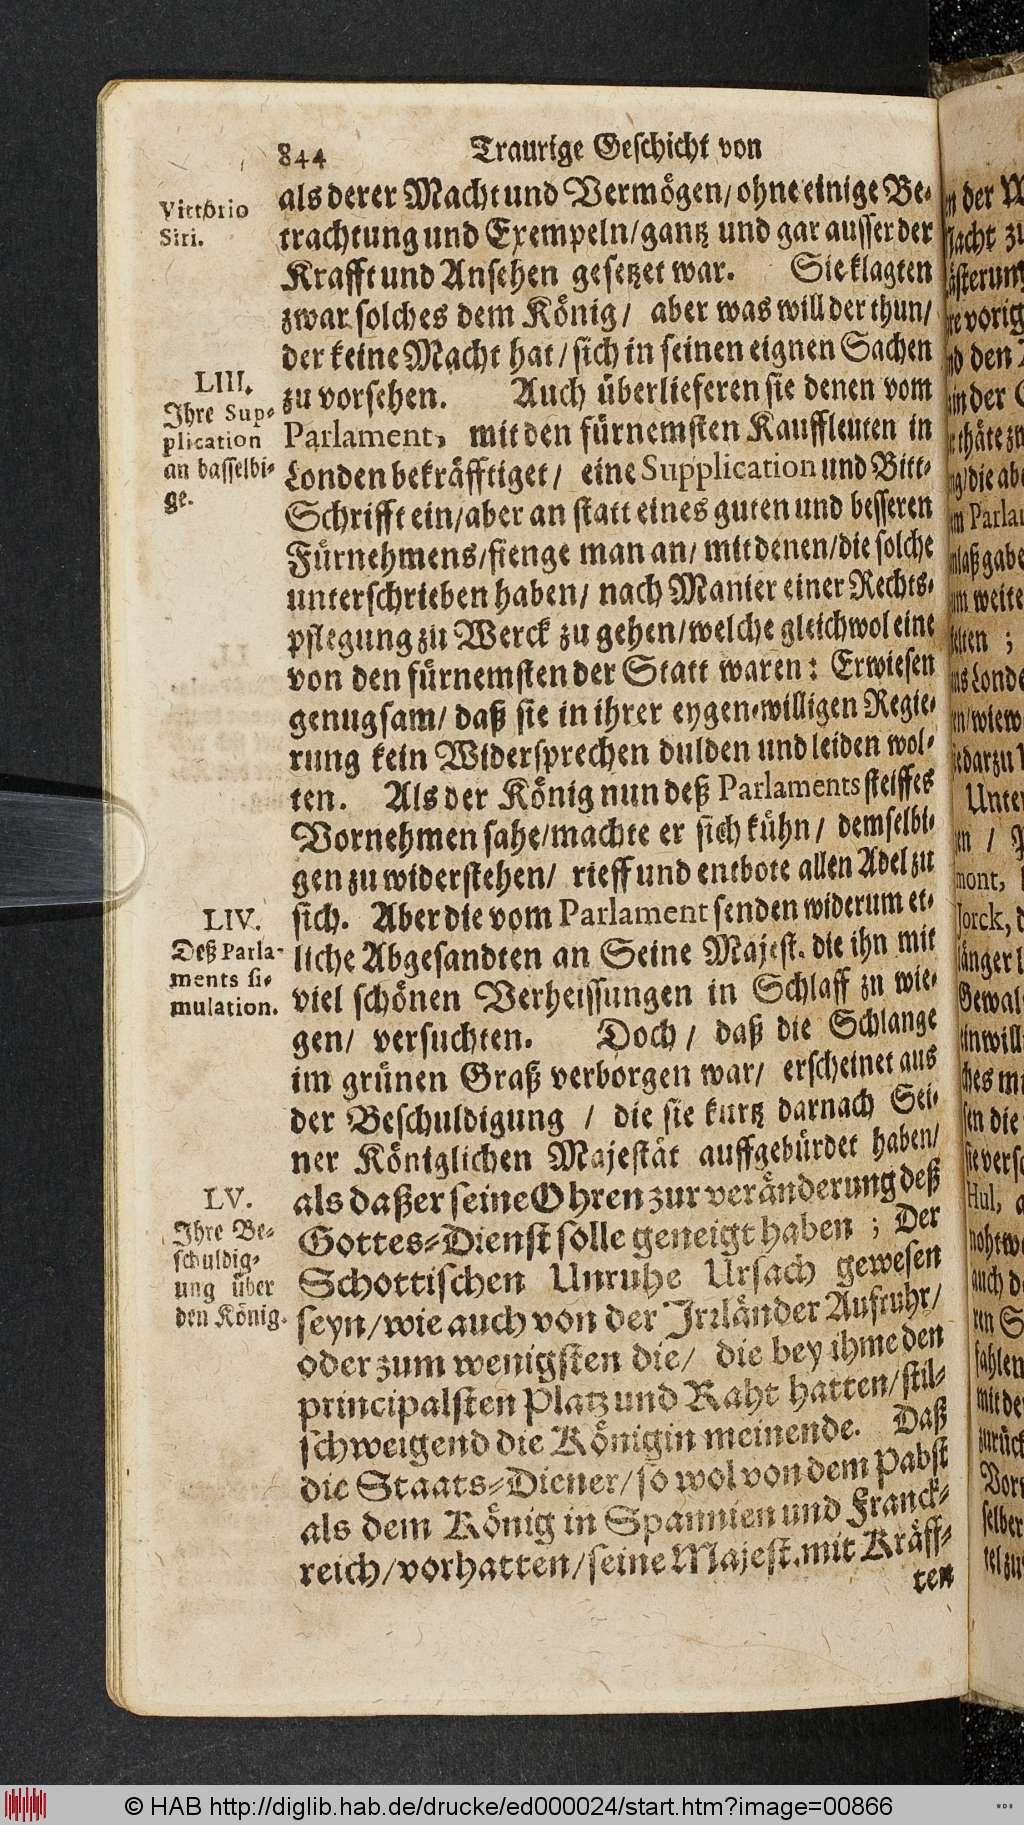 844 Traurige Geschicht von
Vittorio
Siri.
als derer Macht und Vermögen/ ohne einige Be-
trachtung und Exempeln/ gantz und gar ausser der
Krafft und Ansehen gesetzet war. Sie klagten
zwar solches dem König/ aber was will der thun/
der keine Macht hat/ sich in seinen eignen Sachen
zu vorsehen. Auch überlieferen sie denen vom
LIII.
Ihre Sup-
plication
an dasselbi-
ge.
Parlament, mit den fürnemsten Kauffleuten in
Londen bekräfftiget/ eine Supplication und Bitt-
Schrifft ein/ aber an statt eines guten und besseren
Fürnehmens/ fienge man an/ mit denen/ die solche
unterschrieben haben/ nach Manier einer Rechts-
pflegung zu Werck zu gehen/ welche gleichwol eine
von den fürnemsten der Statt waren: Erwiesen
genugsam/ daß sie in ihrer eygen-willigen Regie-
rung kein Widersprechen dulden und leiden wol-
ten. Als der König nun deß Parlaments steiffes
Vornehmen sahe/ machte er sich kühn/ demselbi-
gen zu widerstehen/ rieff und entbote allen Adel zu
sich. Aber die vom Parlament senden widerum et-
LIV.
Deß Parla-
ments si-
mulation.
liche Abgesandten an Seine Majest. die ihn mit
viel schönen Verheissungen in Schlaff zu wie-
gen/ versuchten. Doch/ daß die Schlange
im grünen Graß verborgen war/ erscheinet aus
der Beschuldigung / die sie kurtz darnach Sei-
ner Königlichen Majestät auffgebürdet haben/
LV.
Ihre Be-
schuldig-
ung über
den König.
als daß er seine Ohren zur veränderung deß
Gottes-Dienst solle geneigt haben ; Der
Schottischen Unruhe Ursach gewesen
seyn/ wie auch von der Irrländer Aufruhr/
oder zum wenigsten die/ die bey ihme den
principalsten Platz und Raht hatten/ stil-
schweigend die Königin meinende. Daß
die Staats-Diener/ so wol von dem Pabst
als dem König in Spannien und Franck-
reich/ vorhatten/ seine Majest. mit Kräff-
ten
© HAB http://diglib.hab.de/drucke/ed000024/start.htm?image=00866